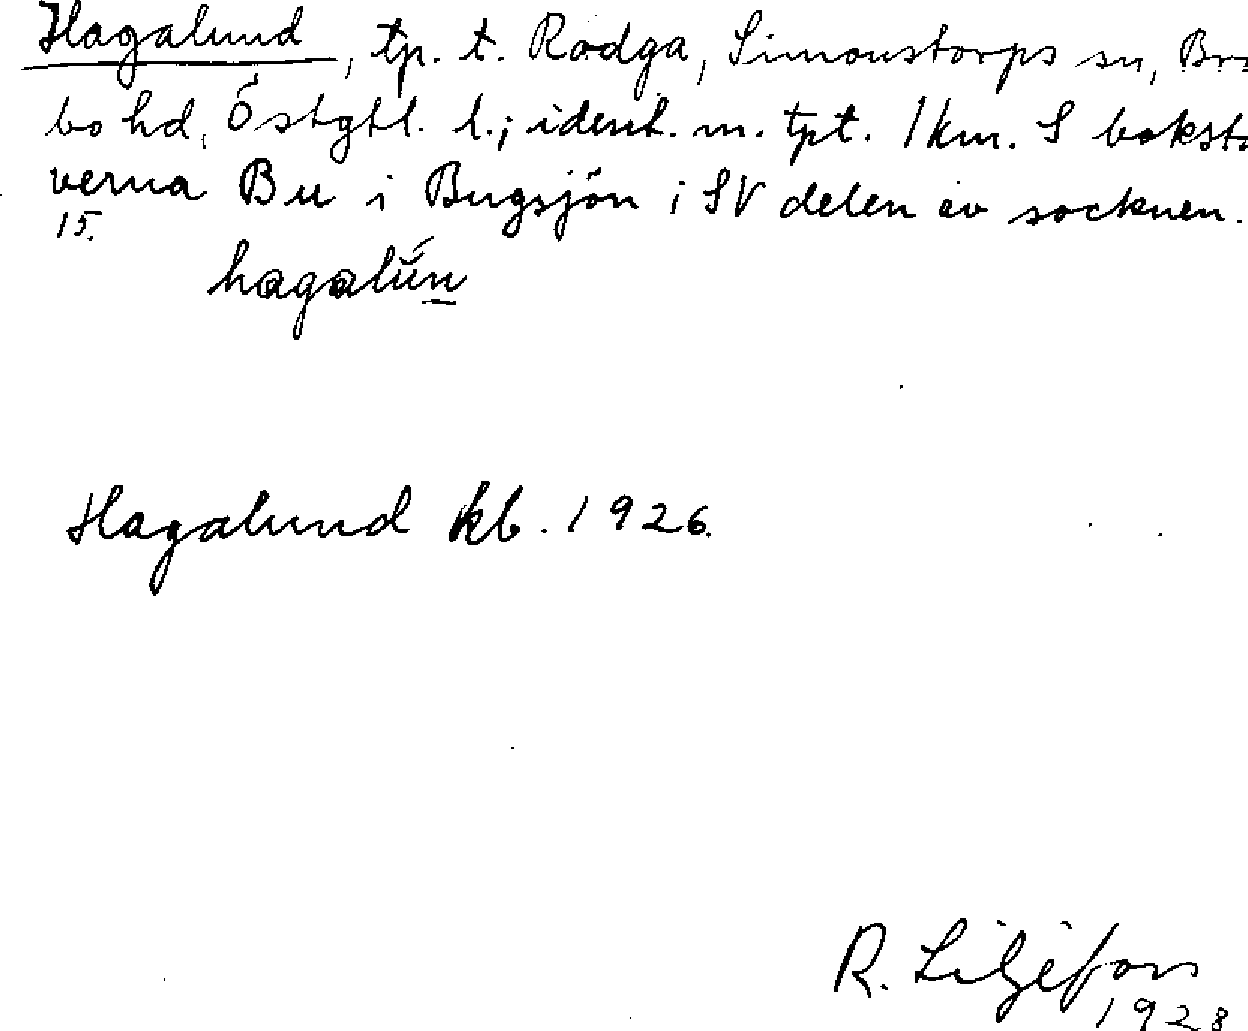 Hagalund, tp. t. Rodga, Simonstorps sn, Brå
bo hd, Östgtl. l.; ident. m. tpt. 1 km. S boksta
verna Bu i Bugsjön i SV delen av socknen.
15.
hagalún
Hagalund kb. 1926.
R. Liljefors
1928